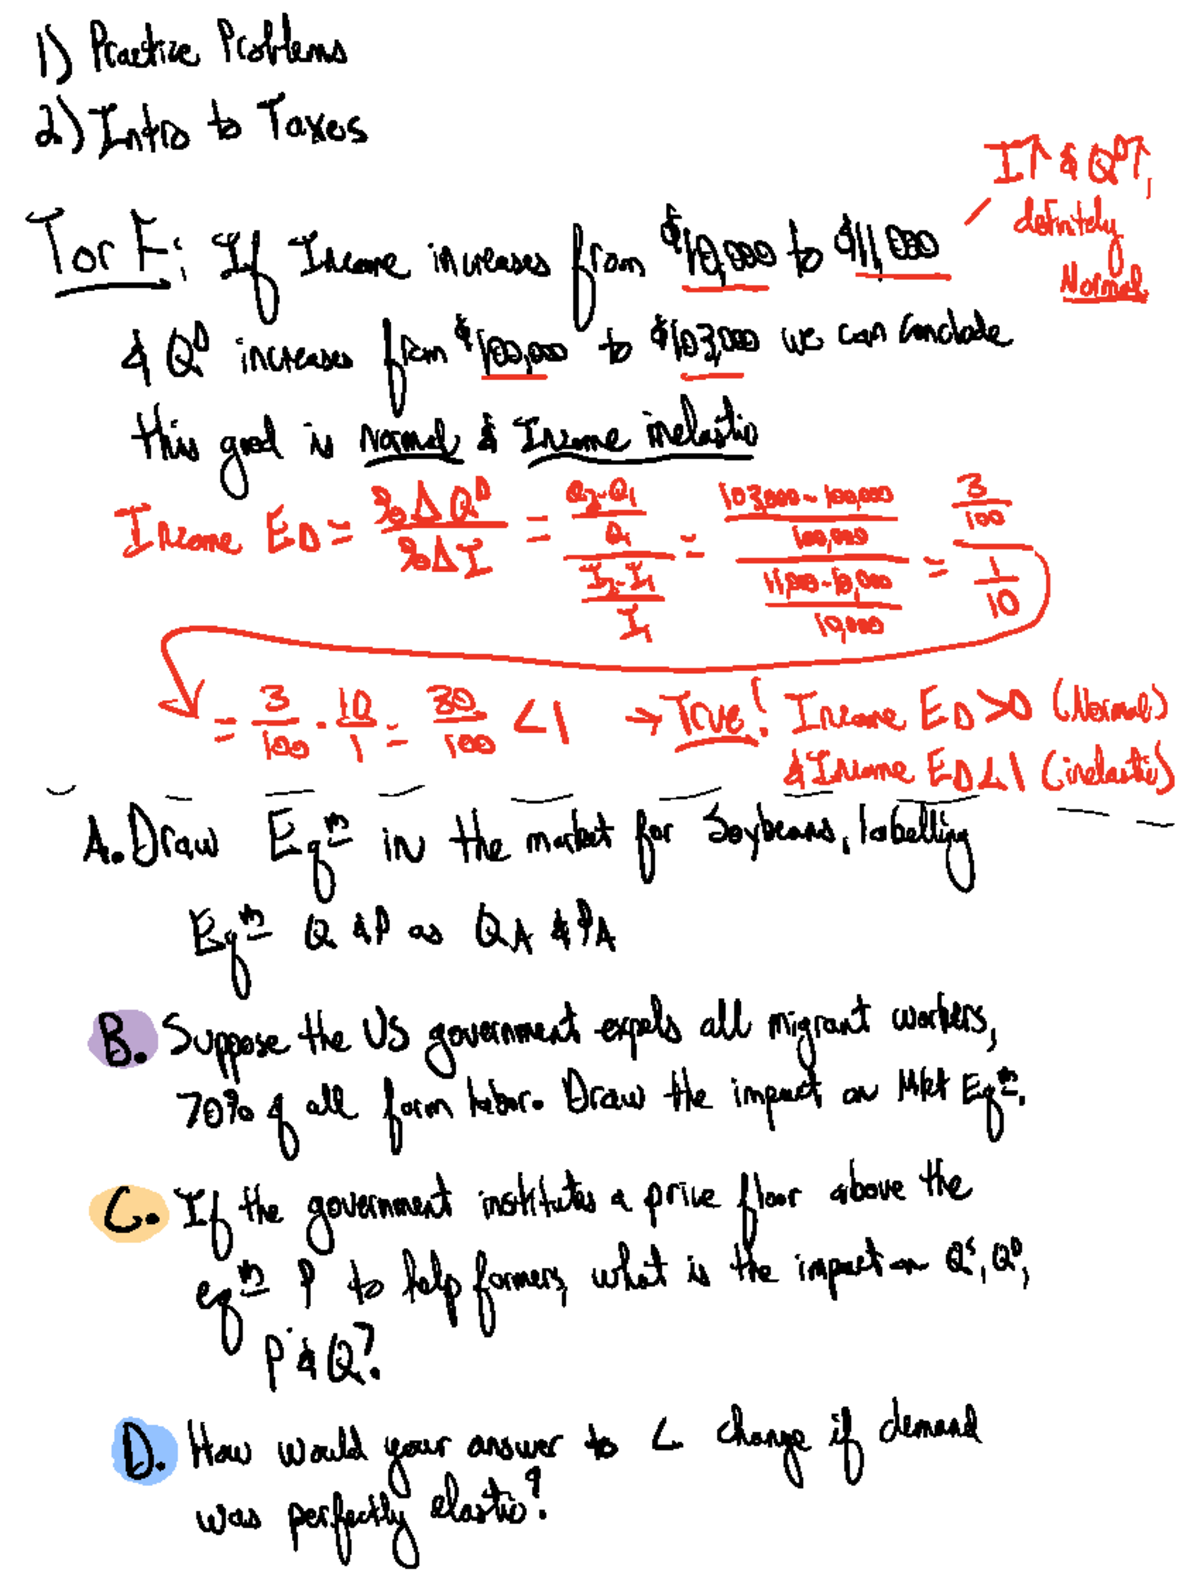 1) Practice Problems
2) Intro to Taxes
I↑ & Q^D↑,
definitely
Normal
T or F: If Income increases from $10,000 to $11,000
& Q^D increases from $100,000 to $103,000 we can conclude
this good is normal & Income inelastic
Income E_D = %ΔQ^D / %ΔI = ((Q₂-Q₁)/Q₁) / ((I₂-I₁)/I₁) = ((103,000-100,000)/100,000) / ((11,000-10,000)/10,000) = (3/100) / (1/10)
= 3/100 · 10/1 = 30/100 < 1 → True! Income E_D > 0 (Normal)
& Income E_D < 1 (inelastic)
A. Draw Eq^m in the market for Soybeans, labelling
Eq^m Q & P as Q_A & P_A
B. Suppose the US government expels all migrant workers,
70% of all farm labor. Draw the impact on Mkt Eq^m.
C. If the government institutes a price floor above the
eq^m P to help farmers, what is the impact on Q^S, Q^D,
P & Q?
D. How would your answer to C change if demand
was perfectly elastic?